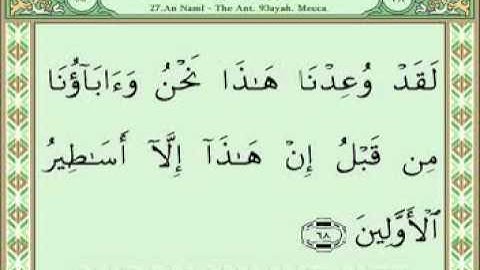 27.An Naml - The Ant. 93ayah. Mecca.
لَقَدْ وُعِدْنَا هَـٰذَا نَحْنُ وَءَابَآؤُنَا
مِن قَبْلُ إِنْ هَـٰذَآ إِلَّآ أَسَـٰطِيرُ
ٱلْأَوَّلِينَ ٦٨